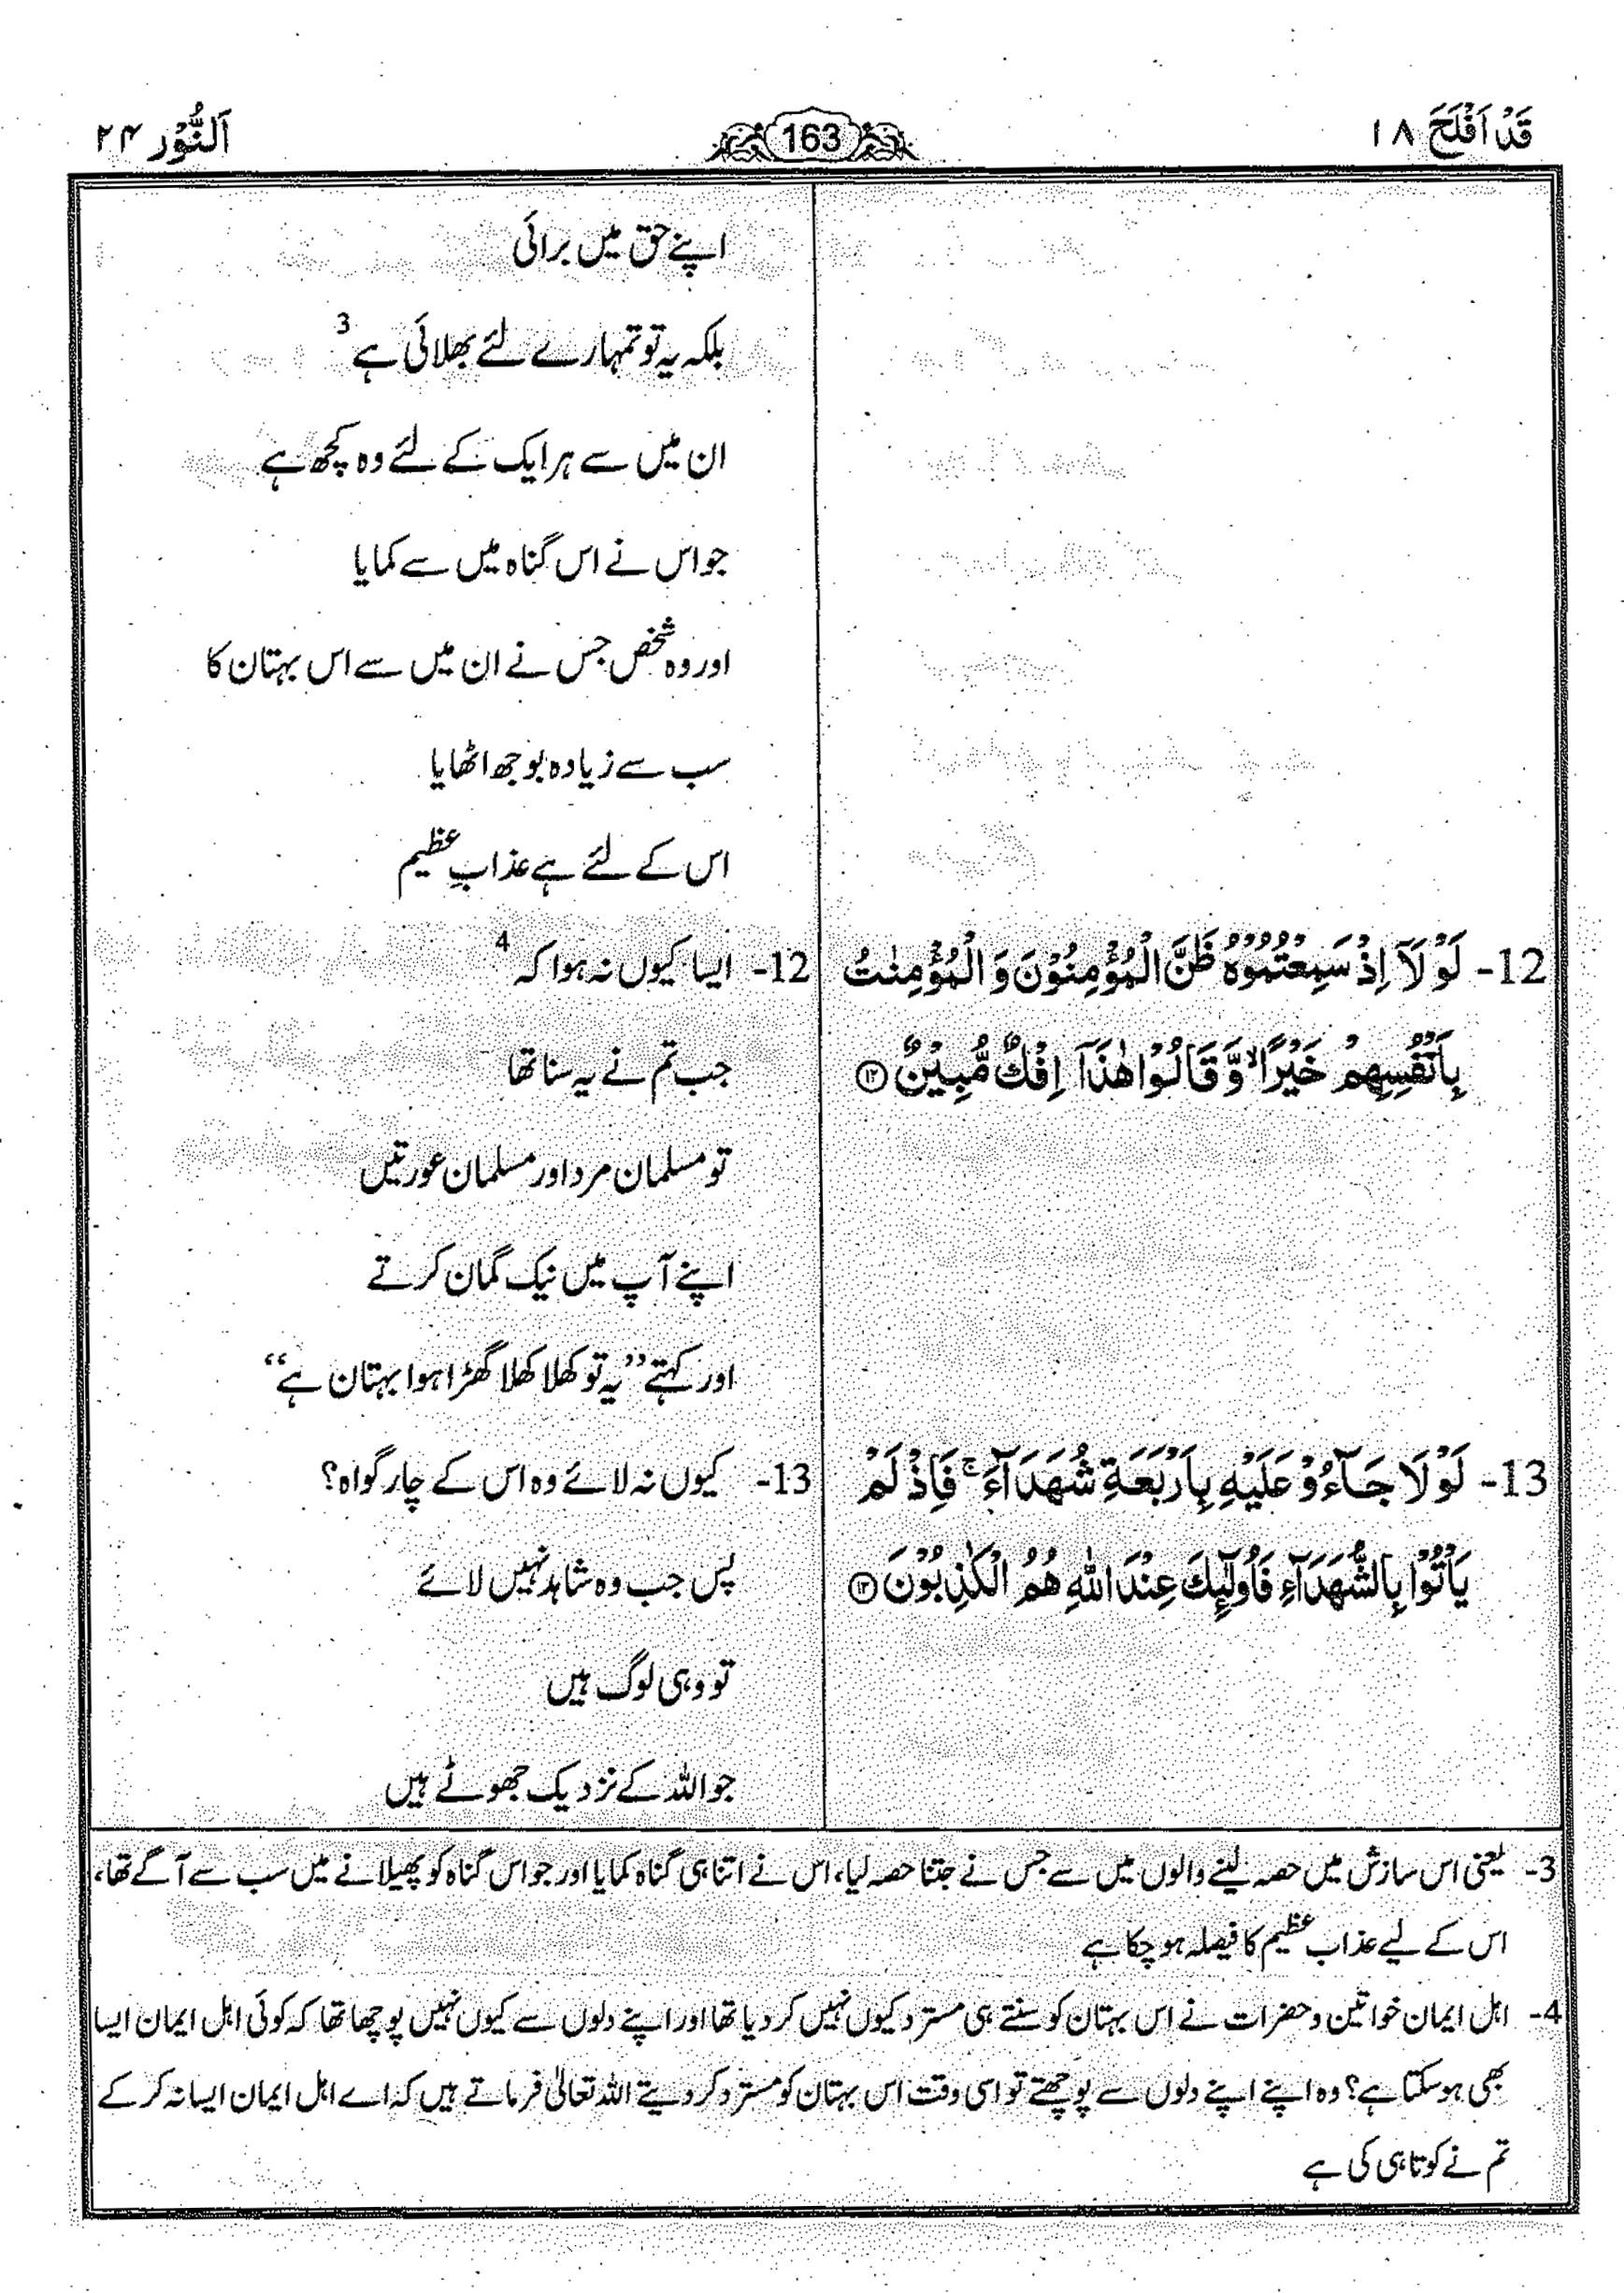 قَدْ اَفْلَحَ ۱۸
163
اَلنُّوْر ۲۴
اپنے حق میں برائی
بلکہ یہ تو تمہارے لئے بھلائی ہے 3
ان میں سے ہر ایک کے لئے وہ کچھ ہے
جو اس نے اس گناہ میں سے کمایا
اور وہ شخص جس نے ان میں سے اس بہتان کا
سب سے زیادہ بوجھ اٹھایا
اس کے لئے ہے عذابِ عظیم
12- لَوْ لَاۤ اِذْ سَمِعْتُمُوْهُ ظَنَّ الْمُؤْمِنُوْنَ وَ الْمُؤْمِنٰتُ
بِاَنْفُسِهِمْ خَيْرًا ۙ وَّ قَالُوْا هٰذَاۤ اِفْكٌ مُّبِيْنٌ ۝۱۲
12- ایسا کیوں نہ ہوا کہ 4
جب تم نے یہ سنا تھا
تو مسلمان مرد اور مسلمان عورتیں
اپنے آپ میں نیک گمان کرتے
اور کہتے ’’یہ تو کھلا کھلا گھڑا ہوا بہتان ہے‘‘
13- لَوْ لَا جَآءُوْ عَلَيْهِ بِاَرْبَعَةِ شُهَدَآءَ ۚ فَاِذْ لَمْ
يَاْتُوْا بِالشُّهَدَآءِ فَاُولٰٓئِكَ عِنْدَ اللّٰهِ هُمُ الْكٰذِبُوْنَ ۝۱۳
13- کیوں نہ لائے وہ اس کے چار گواہ؟
پس جب وہ شاہد نہیں لائے
تو وہی لوگ ہیں
جو اللہ کے نزدیک جھوٹے ہیں
3- یعنی اس سازش میں حصہ لینے والوں میں سے جس نے جتنا حصہ لیا، اس نے اتنا ہی گناہ کمایا اور جو اس گناہ کو پھیلانے میں سب سے آگے تھا،
اس کے لیے عذاب عظیم کا فیصلہ ہو چکا ہے
4- اہل ایمان خواتین و حضرات نے اس بہتان کو سنتے ہی مسترد کیوں نہیں کر دیا تھا اور اپنے دلوں سے کیوں نہیں پوچھا تھا کہ کوئی اہل ایمان ایسا
بھی ہو سکتا ہے؟ وہ اپنے اپنے دلوں سے پوچھتے تو اسی وقت اس بہتان کو مسترد کر دیتے اللہ تعالیٰ فرماتے ہیں کہ اے اہل ایمان ایسا نہ کر کے
تم نے کوتاہی کی ہے